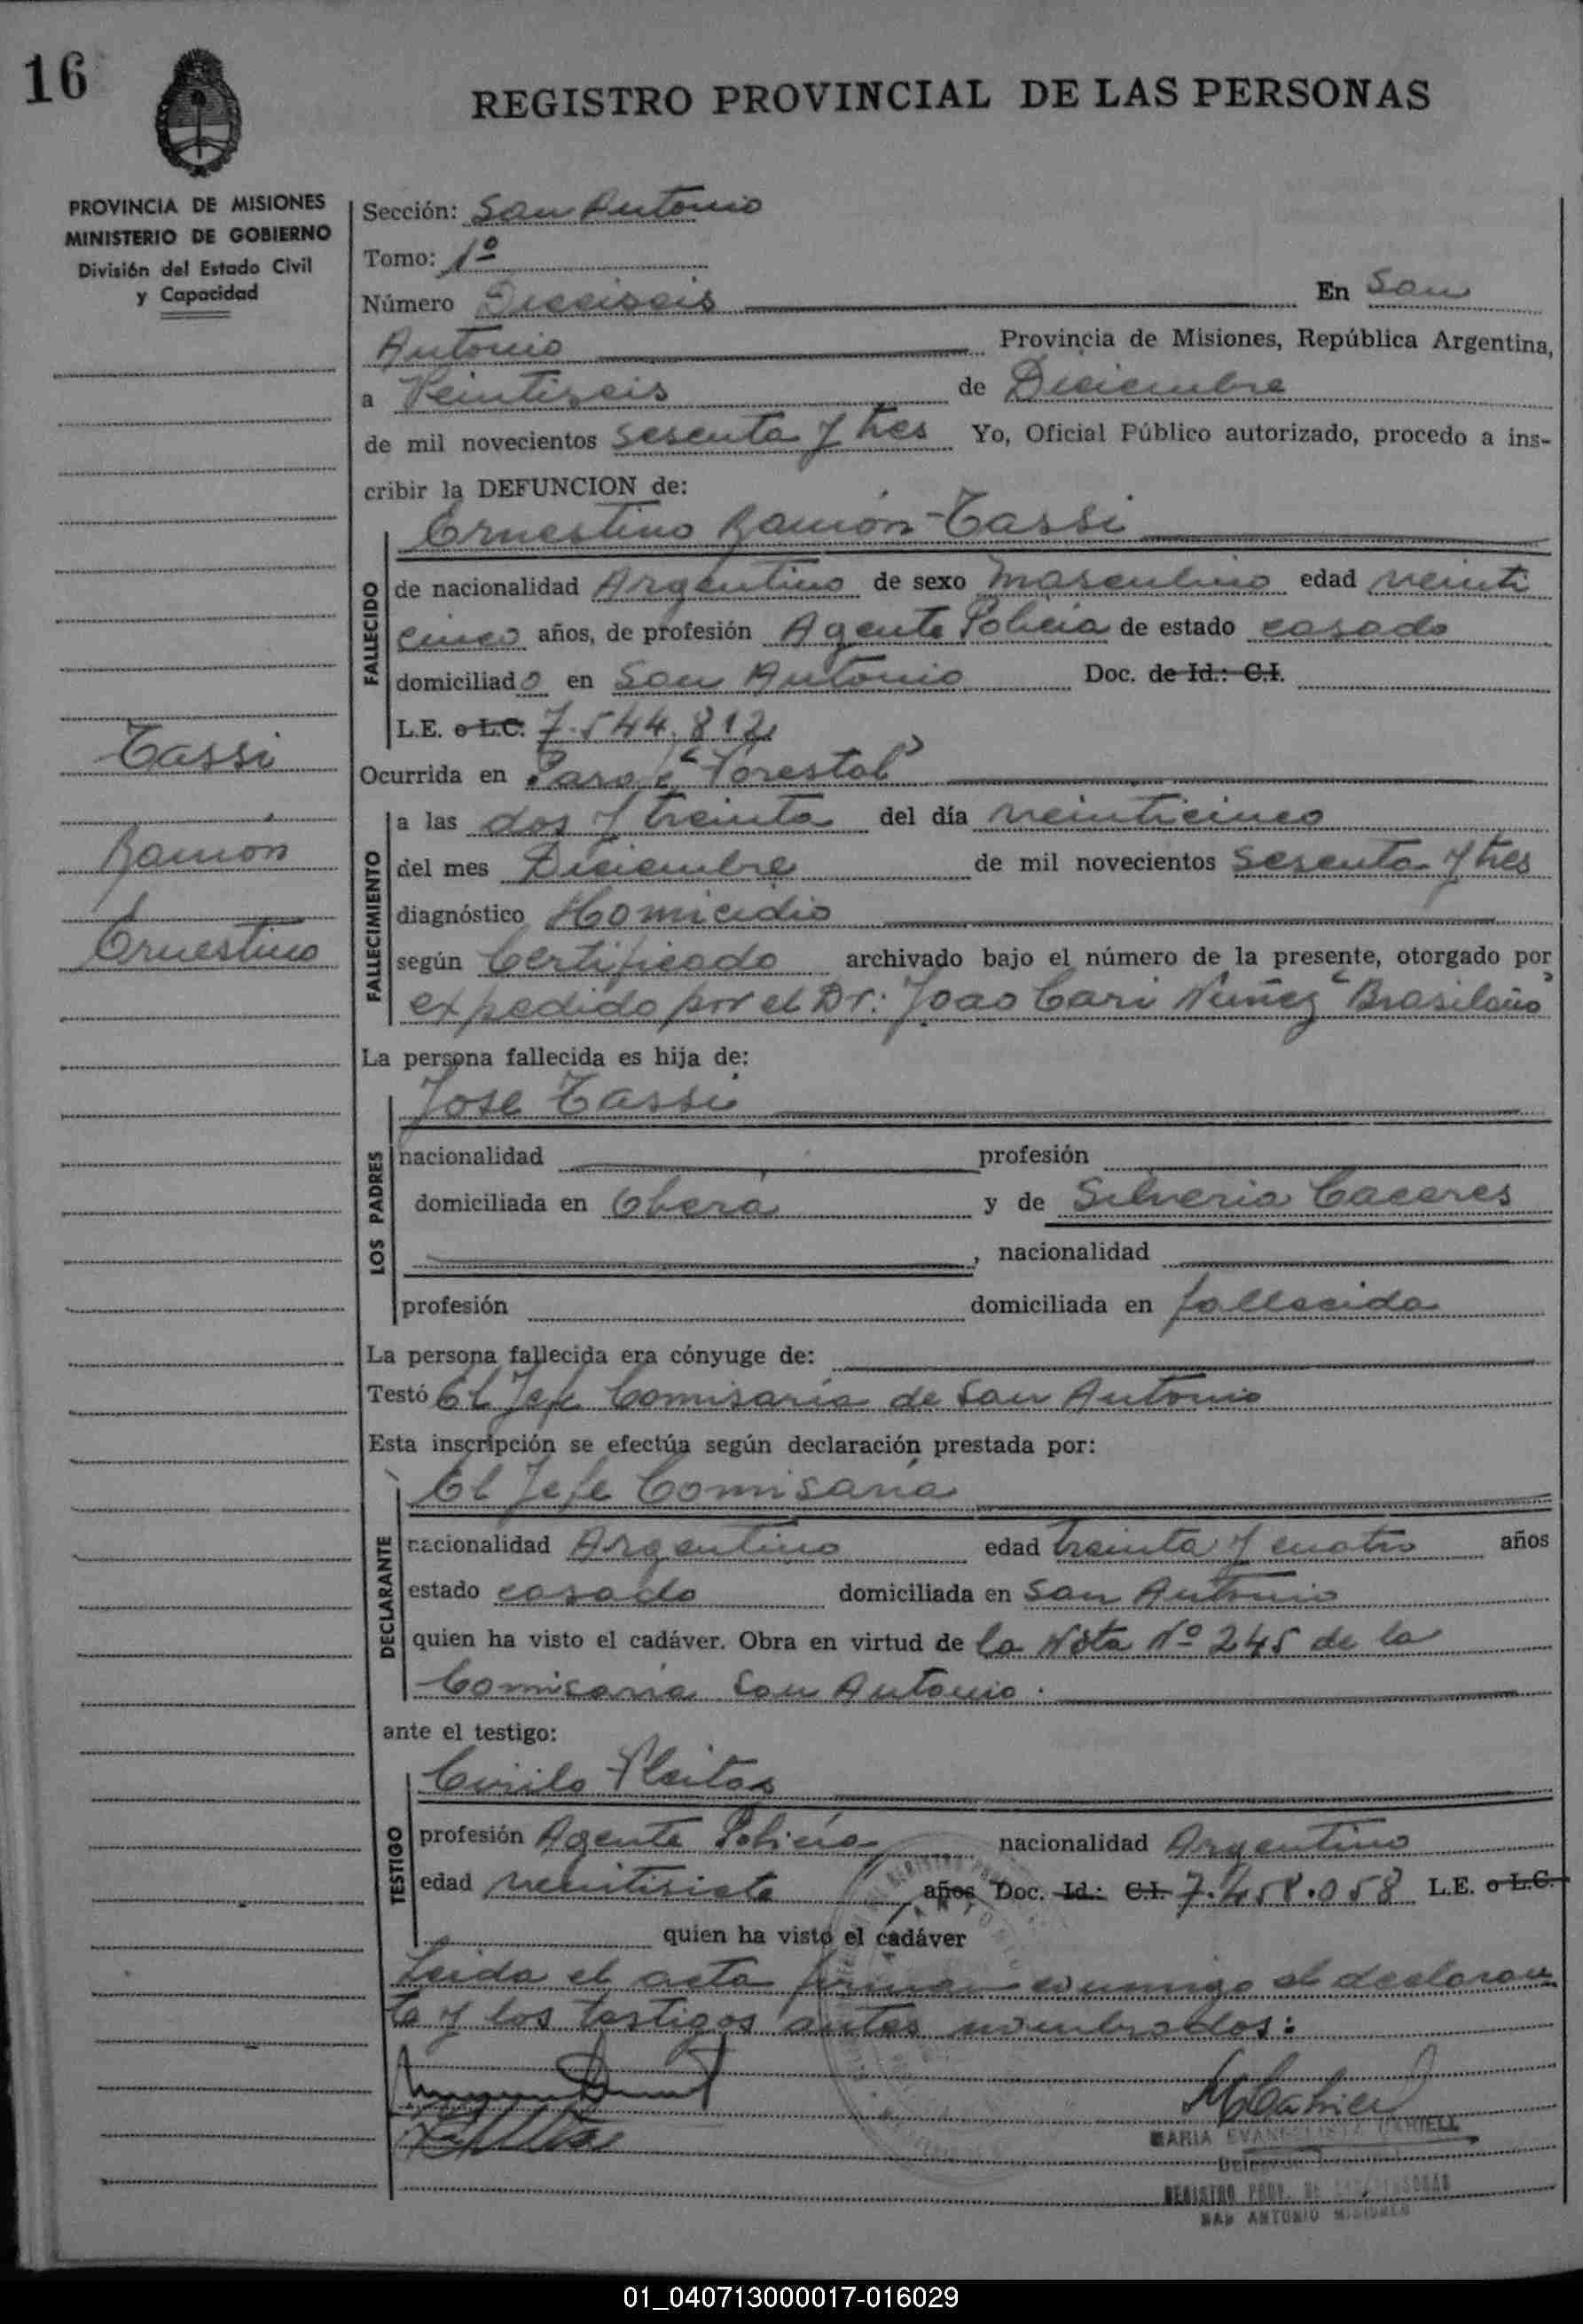 16
REGISTRO PROVINCIAL DE LAS PERSONAS
PROVINCIA DE MISIONES
MINISTERIO DE GOBIERNO
División del Estado Civil
y Capacidad
Sección: San Antonio
Tomo: 1º
Número Dieciseis En San
Antonio Provincia de Misiones, República Argentina,
a Veintiseis de Diciembre
de mil novecientos sesenta y tres Yo, Oficial Público autorizado, procedo a ins-
cribir la DEFUNCION de:
Ernestino Ramón Tassi
FALLECIDO
de nacionalidad Argentino de sexo masculino edad veinti
cinco años, de profesión Agente Policia de estado casado
domiciliado en San Antonio Doc. de Id.: C.I.
L.E. o L.C. 7.544.812
Tassi
Ramón
Ernestino
Ocurrida en "Forestal"
FALLECIMIENTO
a las dos y treinta del día veinticinco
del mes Diciembre de mil novecientos sesenta y tres
diagnóstico Homicidio
según Certificado archivado bajo el número de la presente, otorgado por
expedido por el Dr: Joao Cari Nuñez "Brasileño"
La persona fallecida es hija de:
Jose Tassi
LOS PADRES
nacionalidad profesión
domiciliada en Oberá y de Silveria Caceres
, nacionalidad
profesión domiciliada en fallecida
La persona fallecida era cónyuge de:
Testó El Jefe Comisaría de San Antonio
Esta inscripción se efectúa según declaración prestada por:
El Jefe Comisaría
DECLARANTE
nacionalidad Argentino edad treinta y cuatro años
estado casado domiciliada en San Antonio
quien ha visto el cadáver. Obra en virtud de la Nota Nº 245 de la
Comisaria San Antonio.
ante el testigo:
Cirilo Fleitas
TESTIGO
profesión Agente Policía nacionalidad Argentino
edad veintisiete años Doc. Id.: C.I. 7.458.058 L.E. o L.C.
quien ha visto el cadáver
Leida el acta firman conmigo el declaran
te y los testigos antes nombrados:
MARIA EVANGELISTA
REGISTRO PROV. DE LAS PERSONAS
SAN ANTONIO MISIONES
01_040713000017-016029